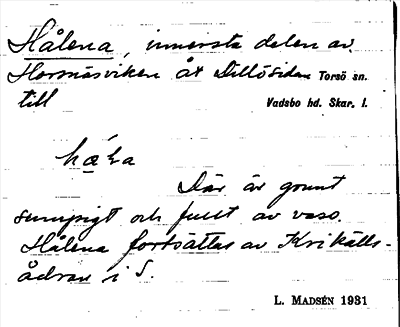 Hålena, innersta delen av
Hornäsviken åt Dillösidan Torsö sn.
till Vadsbo hd. Skar. l.
Där är grunt
sumpigt och fullt av vass.
Hålena fortsättas av Krikålls-
ådran i S.
L. MADSÉN 1931